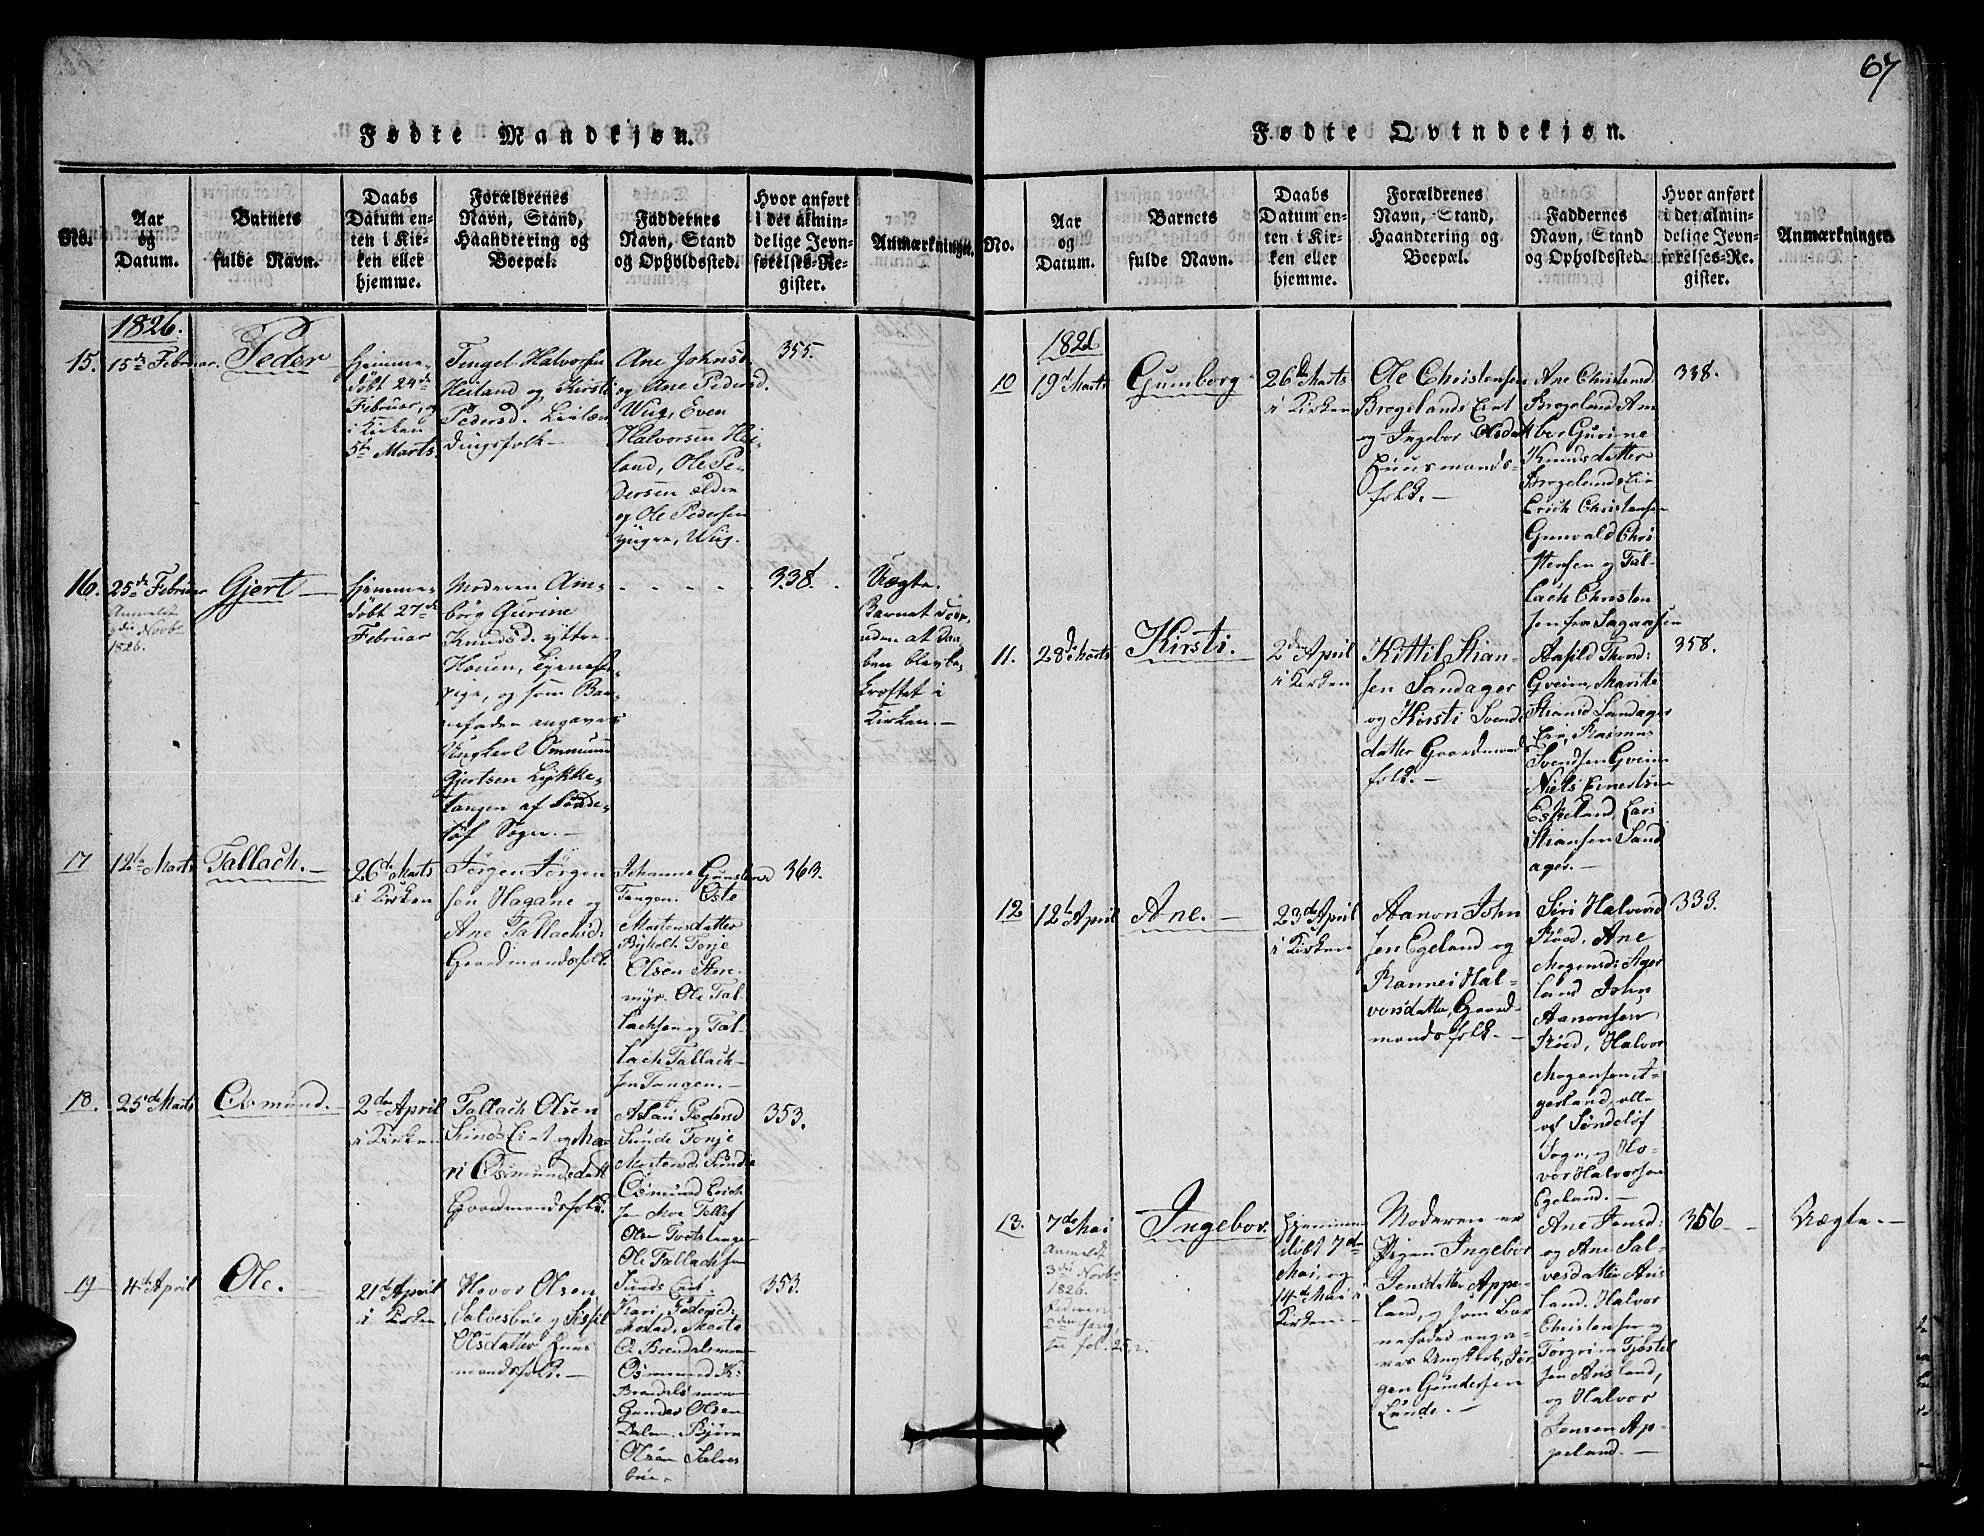 67
Fødte Mandkjøn.
No.
Aar
og
Datum.
Barnets
fulde Navn.
Daabs
Datum en-
ten i Kir-
ken eller
hjemme.
Forældrenes
Navn, Stand,
Haandtering og
Boepæl.
Faddernes
Navn, Stand
og Opholdssted.
Hvor anført
i det almin-
delige Jevn-
førelses-Re-
gister.
Anmærkninger.
1826.
15.
15de Februar.
Peder
Hjemme-
døbt 24de
Februar, og
i Kirken
5te Marts.
Tengel Halvorsen
Heiland og Kirsti
Pedersd.
dingsfolk
Ane Johnsd.
og Ane Pedersd.
Wug, Even
Halvorsen Hei-
land, Ole Pe-
dersen ældre
og Ole Pedersen
yngre, Wug.
355.
16.
25de Februar
Anmeldt
3die Novbr
1826.
Gjert
Hjemme-
døbt 27de
Februar
Moderen Am-
borg Gurine
Knudsd. yttre-
Houen, Tjeneste-
pige, og som Bar-
nefader angaves
Ungkarl Ommund
Gjertsen Lykke-
tangen af Sønde-
løf Sogn.
338.
Uægte.
Barnet døde,
uden at Daa-
ben blev be-
kræftet i
Kirken.
17
12te Marts
Tallach.
26de Marts
i Kirken
Jørgen Jørgen-
sen Hagane og
Ane Tallachsd:
Gaardmandsfolk.
Johanne Gunstensd
Tangen. Oste
Mortensdatter
Byholt. Tonje
Olsen Stre-
myr. Ole Tal-
lachsen og Tal-
lach Tallach-
sen Tangen.
363.
18.
25de Marts
Osmund.
2den April
i Kirken
Tallach Olsen
Sunds Eiet og Ma-
ri Osmundsdatt
Gaardmandsfolk.
Aslau Pedersd
Sunde Tonje
Mortensd: Sunde
Osmund Erich-
sen Moe Tellef
Olsen Tvetstangen
Ole Tallachsen
Sunds Eiet.
353.
19
4de April
Ole.
21de April
i Kirken
Hovor Olsen
Salvesbue og Sissel
Olsdatter Huus-
mandsfolk.
Kari Pedersd:
Mostad, Marte
O. Brendalsmoen
Osmund K:
Brendalsmoen
Gunder Olsen
Dalen. Bjørn
Olsen Salves-
bue.
353.
Fødte Qvindekjøn.
No.
Aar
og
Datum.
Barnets
fulde Navn.
Daabs
Datum en-
ten i Kir-
ken eller
hjemme.
Forældrenes
Navn, Stand,
Haandtering og
Boepæl.
Faddernes
Navn, Stand
og Opholdssted.
Hvor anført
i det almin-
delige Jevn-
førelses-Re-
gister.
Anmærkninger.
1826
10
19de Marts
Gumborg
26de Marts
i Kirken
Ole Christensen
Brogelands Eiet
og Ingebor Olsdatt
Huusmands-
folk.
Ane Christensd:
Brogeland Am-
bor Gurine
Knudsdatter
Brogelands Eie
Erich Christensen
Gunvald Chri-
stensen og Tal-
lach Christen-
sen fra Sagaasen
338.
11.
28de Marts
Kirsti.
2den April
i Kirken
Kittil Stian-
sen Sandager
og Kirsti Svends-
datter Gaardmands-
folk.
Aasild Thord:
Gveim, Marite
Stiansd Sandager
Eie, Rasmus
Svendsen Gveim
Niels Ernestsen
Eskeland, Lars
Stiansen Sand-
ager.
358.
12
12te April
Ane.
23de April
i Kirken
Aanon John-
sen Egeland og
Rannei Hal-
vorsdatter, Gaard-
mandsfolk.
Siri Halvorsd
Røed, Ane
Mogensd: Ager-
land John
Aanonsen
Røed, Halvor
Mogensen A-
gerland, alle
af Søndeløf
Sogn, og Ho-
vor Halvorsen
Egeland.
333.
13.
7de Mai
Anmeldt
3die Novbr
1826.
Ingebor.
Hjemme-
døbt 7de
Mai, og
14de Mai i
Kirken
Moderen er
Pigen Ingebor
Jensdatter Appe-
land, og som Bar-
nefader anga-
ves Ungkarl, Jør-
gen Gundersen
Lunde.
Ane Jensd:
og Ane Sal-
vesdatter Aas-
land. Halvor
Christensen og
Torgrim Tjøstel-
sen Aasland,
og Halvor
Jensen Ap-
peland.
356
Uægte.